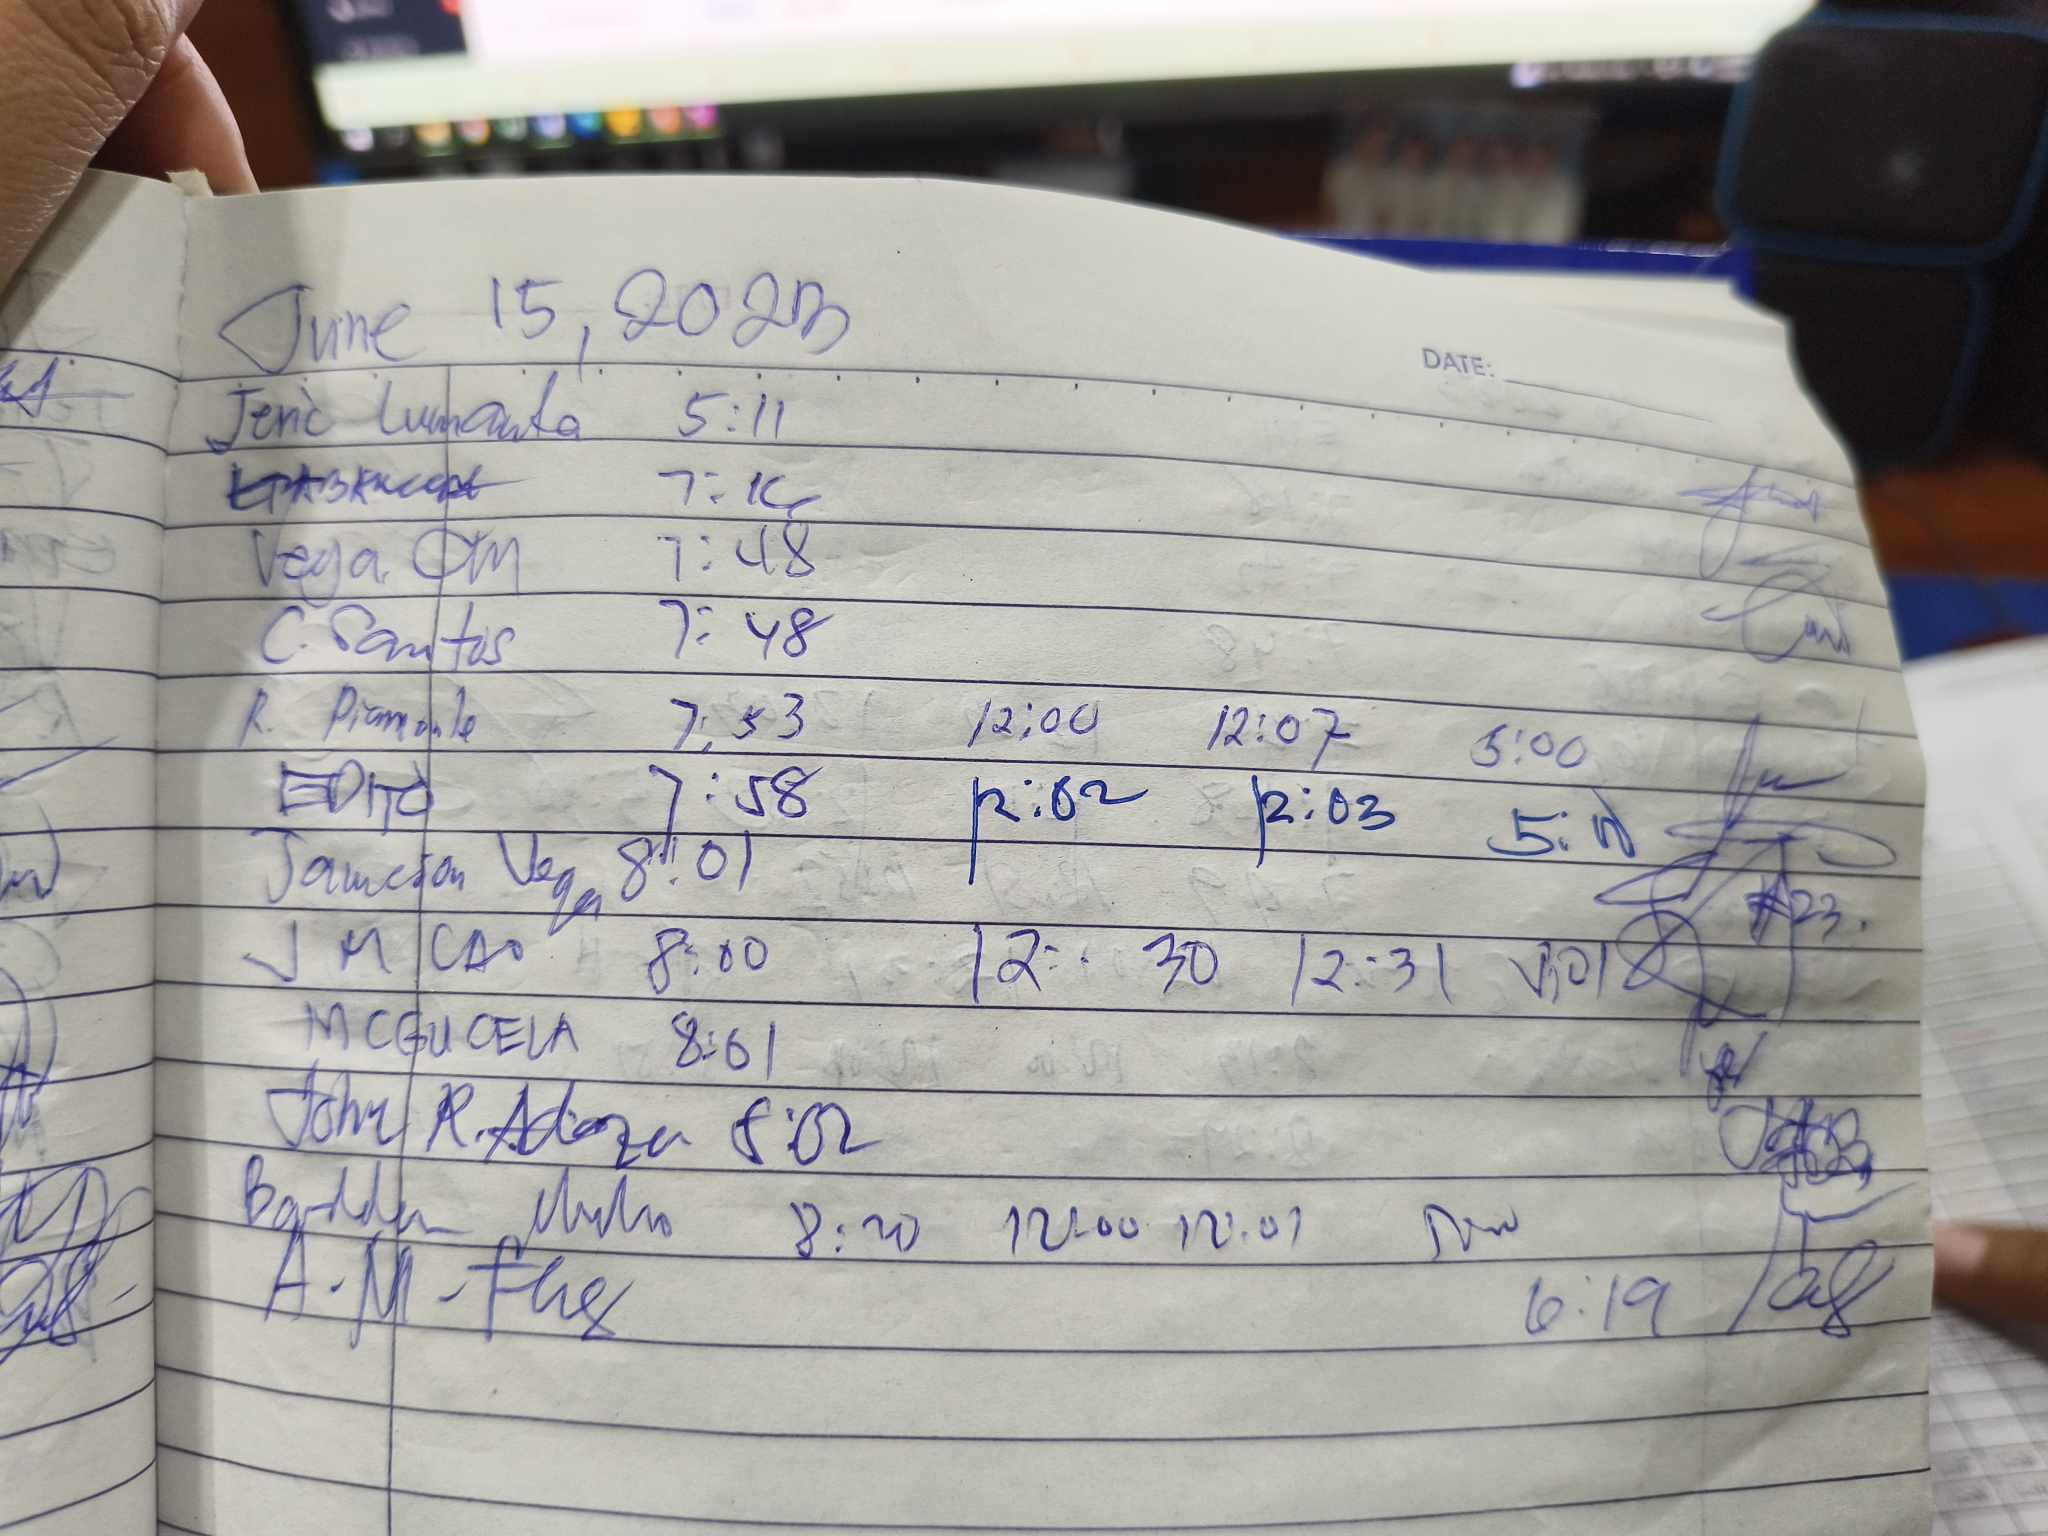 June 15, 2023
DATE:
Jeric Lumanta 5:11
7:16
Vega. OM 7:48
C. Santos 7:48
R. Piamonte 7:53 12:00 12:07 5:00
EDITO 7:58 12:02 12:03
Jameson Vega 8:01
#23.
J M CAO 8:00 12: 30 12:31
MCGUCELA 8:01
John R. Adoza 8:02
8:20 12:00 12:01
A-M- 6:19